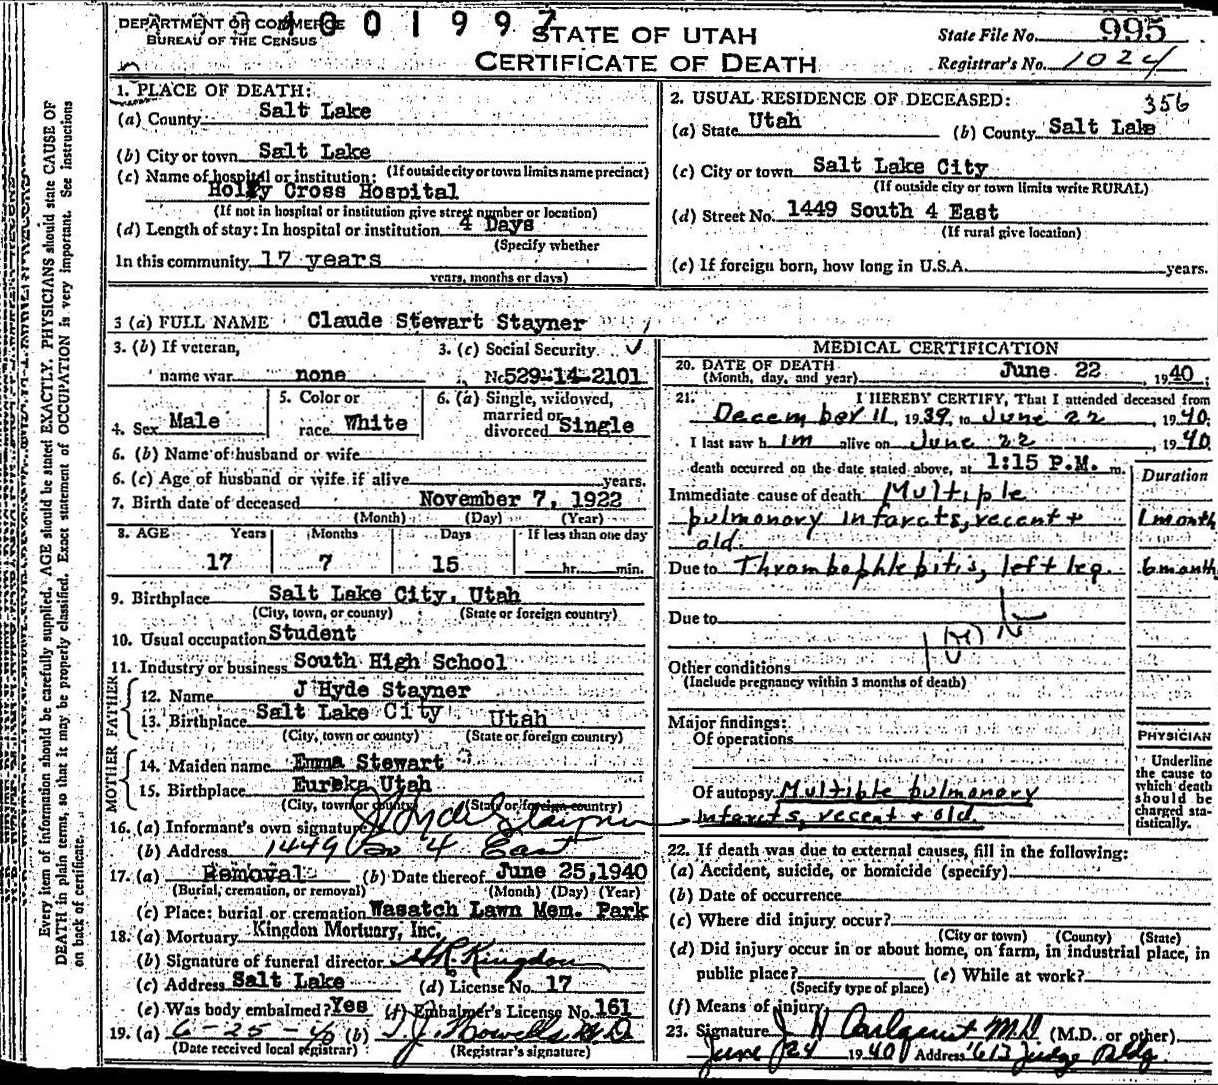 DEPARTMENT OF COMMERCE
BUREAU OF THE CENSUS
4001997
STATE OF UTAH
CERTIFICATE OF DEATH
State File No. 995
Registrar's No. 1024
Every item of information should be carefully supplied. AGE should be stated EXACTLY. PHYSICIANS should state CAUSE OF
DEATH in plain terms, so that it may be properly classified. Exact statement of OCCUPATION is very important. See instructions
on back of certificate.
1. PLACE OF DEATH:
(a) County Salt Lake
(b) City or town Salt Lake
(If outside city or town limits name precinct)
(c) Name of hospital or institution:
Holy Cross Hospital
(If not in hospital or institution give street number or location)
(d) Length of stay: In hospital or institution 4 Days
(Specify whether
In this community 17 years
years, months or days)
2. USUAL RESIDENCE OF DECEASED: 356
(a) State Utah (b) County Salt Lake
(c) City or town Salt Lake City
(If outside city or town limits write RURAL)
(d) Street No. 1449 South 4 East
(If rural give location)
(e) If foreign born, how long in U.S.A. years.
3 (a) FULL NAME Claude Stewart Stayner
3. (b) If veteran,
name war none
3. (c) Social Security
No 529-14-2101
4. Sex Male
5. Color or
race White
6. (a) Single, widowed,
married or
divorced Single
6. (b) Name of husband or wife
6. (c) Age of husband or wife if alive years.
7. Birth date of deceased November 7, 1922
(Month) (Day) (Year)
8. AGE Years Months Days If less than one day
17 7 15 hr. min.
9. Birthplace Salt Lake City, Utah
(City, town, or county) (State or foreign country)
10. Usual occupation Student
11. Industry or business South High School
FATHER
12. Name J Hyde Stayner
13. Birthplace Salt Lake City Utah
(City, town or county) (State or foreign country)
MOTHER
14. Maiden name Emma Stewart
15. Birthplace Eureka Utah
(City, town or county) (State or foreign country)
16. (a) Informant's own signature J Hyde Stayner
(b) Address 1449 So 4 East
17. (a) Removal (b) Date thereof June 25, 1940
(Burial, cremation, or removal) (Month) (Day) (Year)
(c) Place: burial or cremation Wasatch Lawn Mem. Park
18. (a) Mortuary Kingdon Mortuary, Inc.
(b) Signature of funeral director Kingdon
(c) Address Salt Lake (d) License No. 17
(e) Was body embalmed? Yes (f) Embalmer's License No. 161
19. (a) 6-25-40 (b) T. J. Howells M.D.
(Date received local registrar) (Registrar's signature)
MEDICAL CERTIFICATION
20. DATE OF DEATH
(Month, day, and year) June 22, 1940.
21. I HEREBY CERTIFY, That I attended deceased from
December 11, 1939, to June 22, 1940.
I last saw h im alive on June 22, 1940
death occurred on the date stated above, at 1:15 P.M. m.
Duration
Immediate cause of death Multiple
pulmonary infarcts, recent + 1 month
old.
Due to Thrombophlebitis, left leg. 6 month
Due to
Other conditions
(Include pregnancy within 3 months of death)
Major findings:
Of operations
Of autopsy Multiple pulmonary
infarcts, recent + old.
PHYSICIAN
Underline
the cause to
which death
should be
charged sta-
tistically.
22. If death was due to external causes, fill in the following:
(a) Accident, suicide, or homicide (specify)
(b) Date of occurrence
(c) Where did injury occur?
(City or town) (County) (State)
(d) Did injury occur in or about home, on farm, in industrial place, in
public place? (e) While at work?
(Specify type of place)
(f) Means of injury
23. Signature J H Carlquist M.D. (M.D. or other)
June 24 1940 Address 613 Judge Bldg.